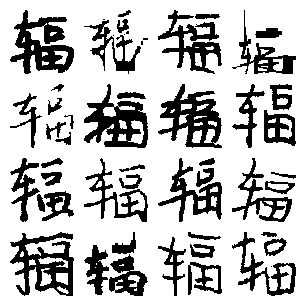 辐辐辐辐
辐辐辐辐
辐辐辐辐
辐辐辐辐